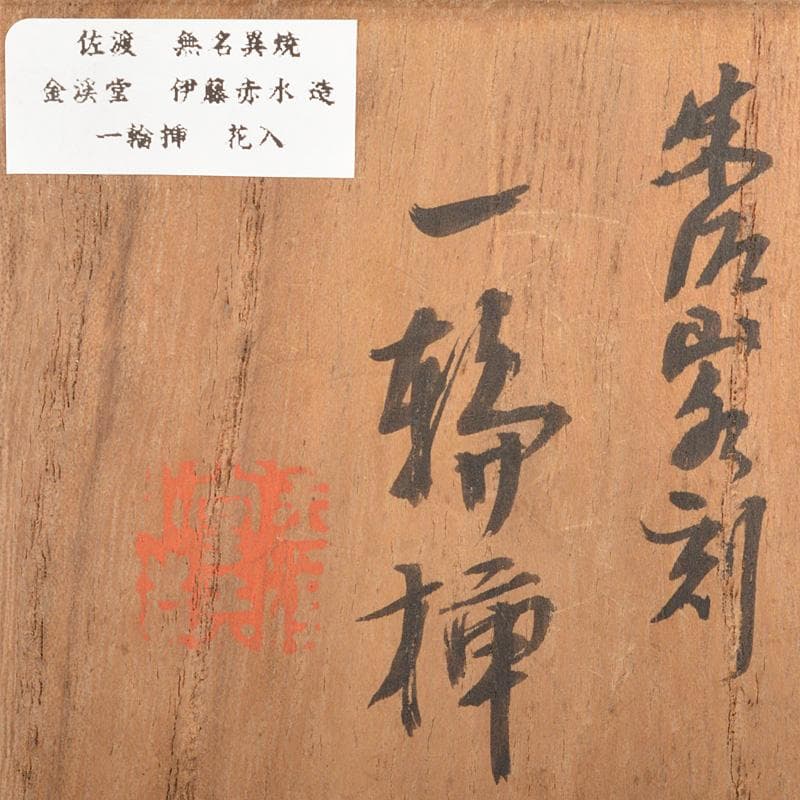 佐渡 無名異焼
金渓堂 伊藤赤水 造
一輪挿 花入
朱泥山水刻
一輪挿